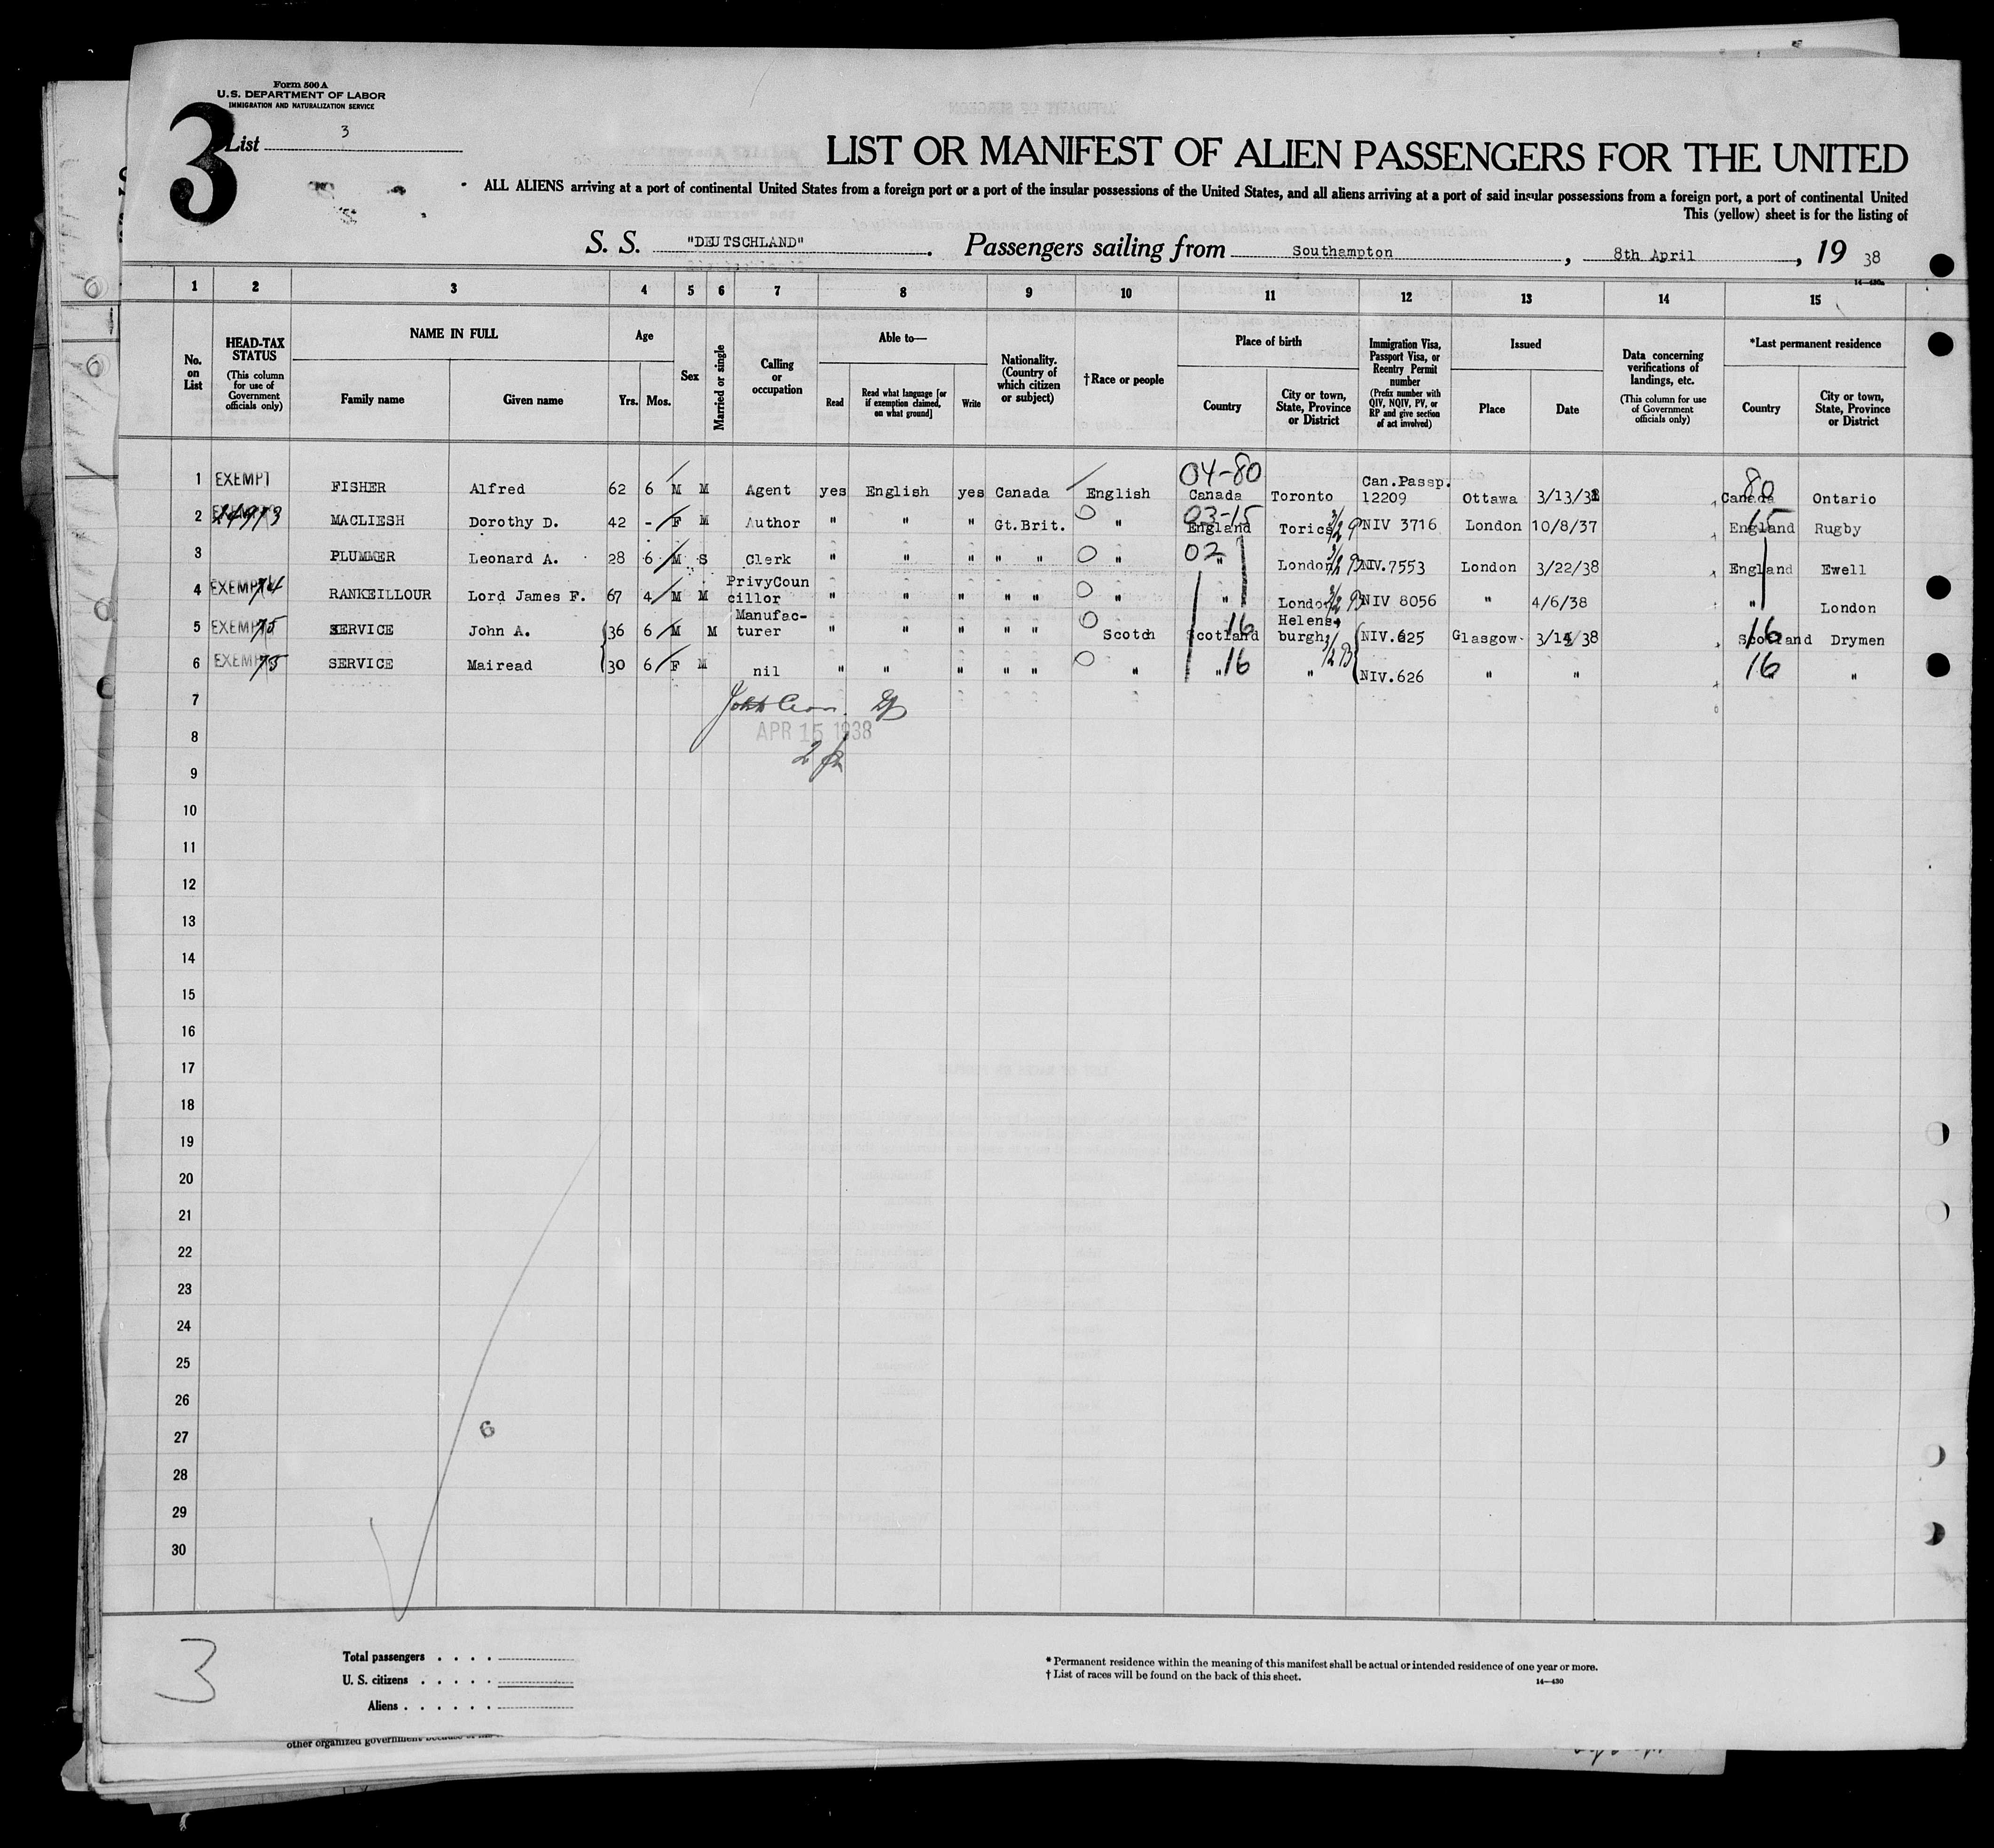 Form 500 A
U.S. DEPARTMENT OF LABOR
IMMIGRATION AND NATURALIZATION SERVICE
3
List 3
LIST OR MANIFEST OF ALIEN PASSENGERS FOR THE UNITED
ALL ALIENS arriving at a port of continental United States from a foreign port or a port of the insular possessions of the United States, and all aliens arriving at a port of said insular possessions from a foreign port, a port of continental United
This (yellow) sheet is for the listing of
S. S. "DEUTSCHLAND". Passengers sailing from Southampton, 8th April, 19 38
14-430a
1 2 3 4 5 6 7 8 9 10 11 12 13 14 15
No. on List
HEAD-TAX STATUS (This column for use of Government officials only)
NAME IN FULL Family name Given name
Age Yrs. Mos.
Sex
Married or single
Calling or occupation
Able to— Read Read what language [or if exemption claimed, on what ground] Write
Nationality. (Country of which citizen or subject)
†Race or people
Place of birth Country City or town, State, Province or District
Immigration Visa, Passport Visa, or Reentry Permit number (Prefix number with QIV, NQIV, PV, or RP and give section of act involved)
Issued Place Date
Data concerning verifications of landings, etc. (This column for use of Government officials only)
*Last permanent residence Country City or town, State, Province or District
04-80
1 EXEMPT FISHER Alfred 62 6 M M Agent yes English yes Canada English Canada Toronto Can.Passp. 12209 Ottawa 3/13/38 80 Canada Ontario
2 MACLIESH Dorothy D. 42 - F M Author " " " Gt.Brit. " 03-15 England Torics NIV 3716 London 10/8/37 15 England Rugby
3 PLUMMER Leonard A. 28 6 M S Clerk " " " " " " 02 " London NIV.7553 London 3/22/38 England Ewell
4 EXEMPT RANKEILLOUR Lord James F. 67 4 M M PrivyCoun cillor " " " " " " " London NIV 8056 " 4/6/38 " London
5 EXEMPT SERVICE John A. 36 6 M M Manufac- turer " " " " " Scotch Scotland 16 Helens- burgh NIV.625 Glasgow 3/14/38 16 Scotland Drymen
6 EXEMPT SERVICE Mairead 30 6 F M nil " " " " " " " 16 " NIV.626 " " 16 "
7
APR 15 1938
8
9
10
11
12
13
14
15
16
17
18
19
20
21
22
23
24
25
26
6
27
28
29
30
3
Total passengers . . . .
U. S. citizens . . . . .
Aliens . . . . . .
* Permanent residence within the meaning of this manifest shall be actual or intended residence of one year or more.
† List of races will be found on the back of this sheet.
14—430
other organized government because of